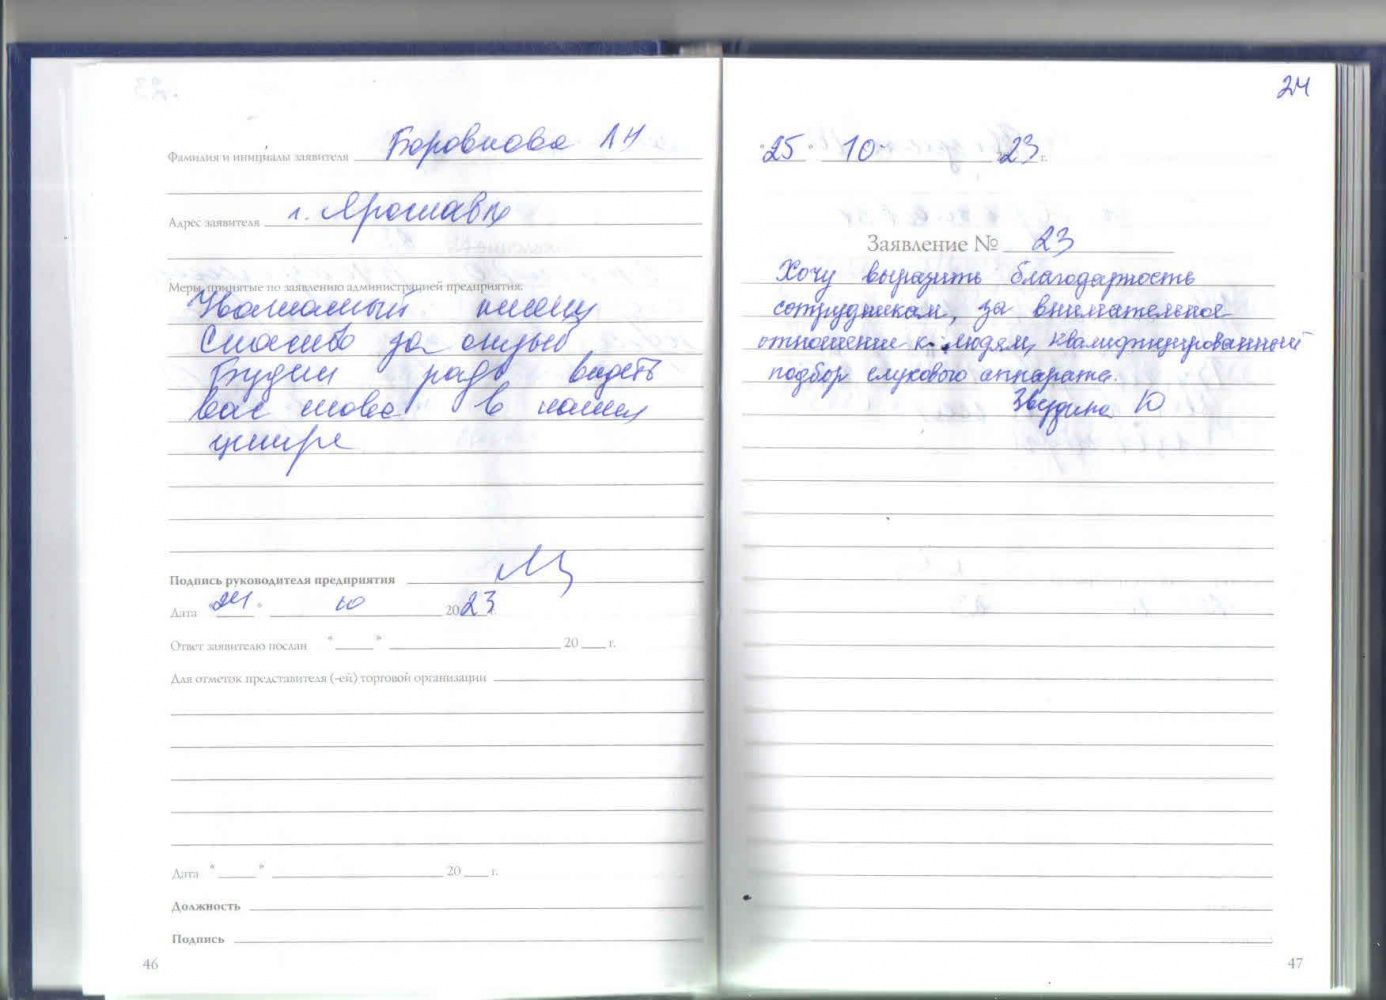 Фамилия и инициалы заявителя Боровкова ЛН
Адрес заявителя г. Ярославль
Меры, принятые по заявлению администрацией предприятия:
Уважаемый
Спасибо за отзыв
Будем рады видеть
вас снова в нашем
центре
Подпись руководителя предприятия
Дата "24" 10 2023 г.
Ответ заявителю послан "___" ______ 20 ___ г.
Для отметок представителя (-ей) торговой организации
Дата "___" ______ 20 ___ г.
Должность
Подпись
46
24
"25" 10 23 г.
Заявление № 23
Хочу выразить благодарность
сотрудникам, за внимательное
отношение к людям, квалифицированный
подбор слухового аппарата.
Ю
47